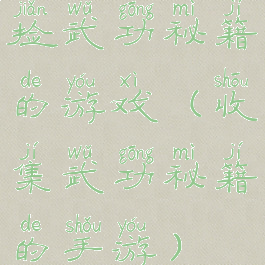 jiǎn wǔ gōng mì jí
捡武功秘籍
de yóu xì shōu
的游戏(收
jí wǔ gōng mì jí
集武功秘籍
de shǒu yóu
的手游)